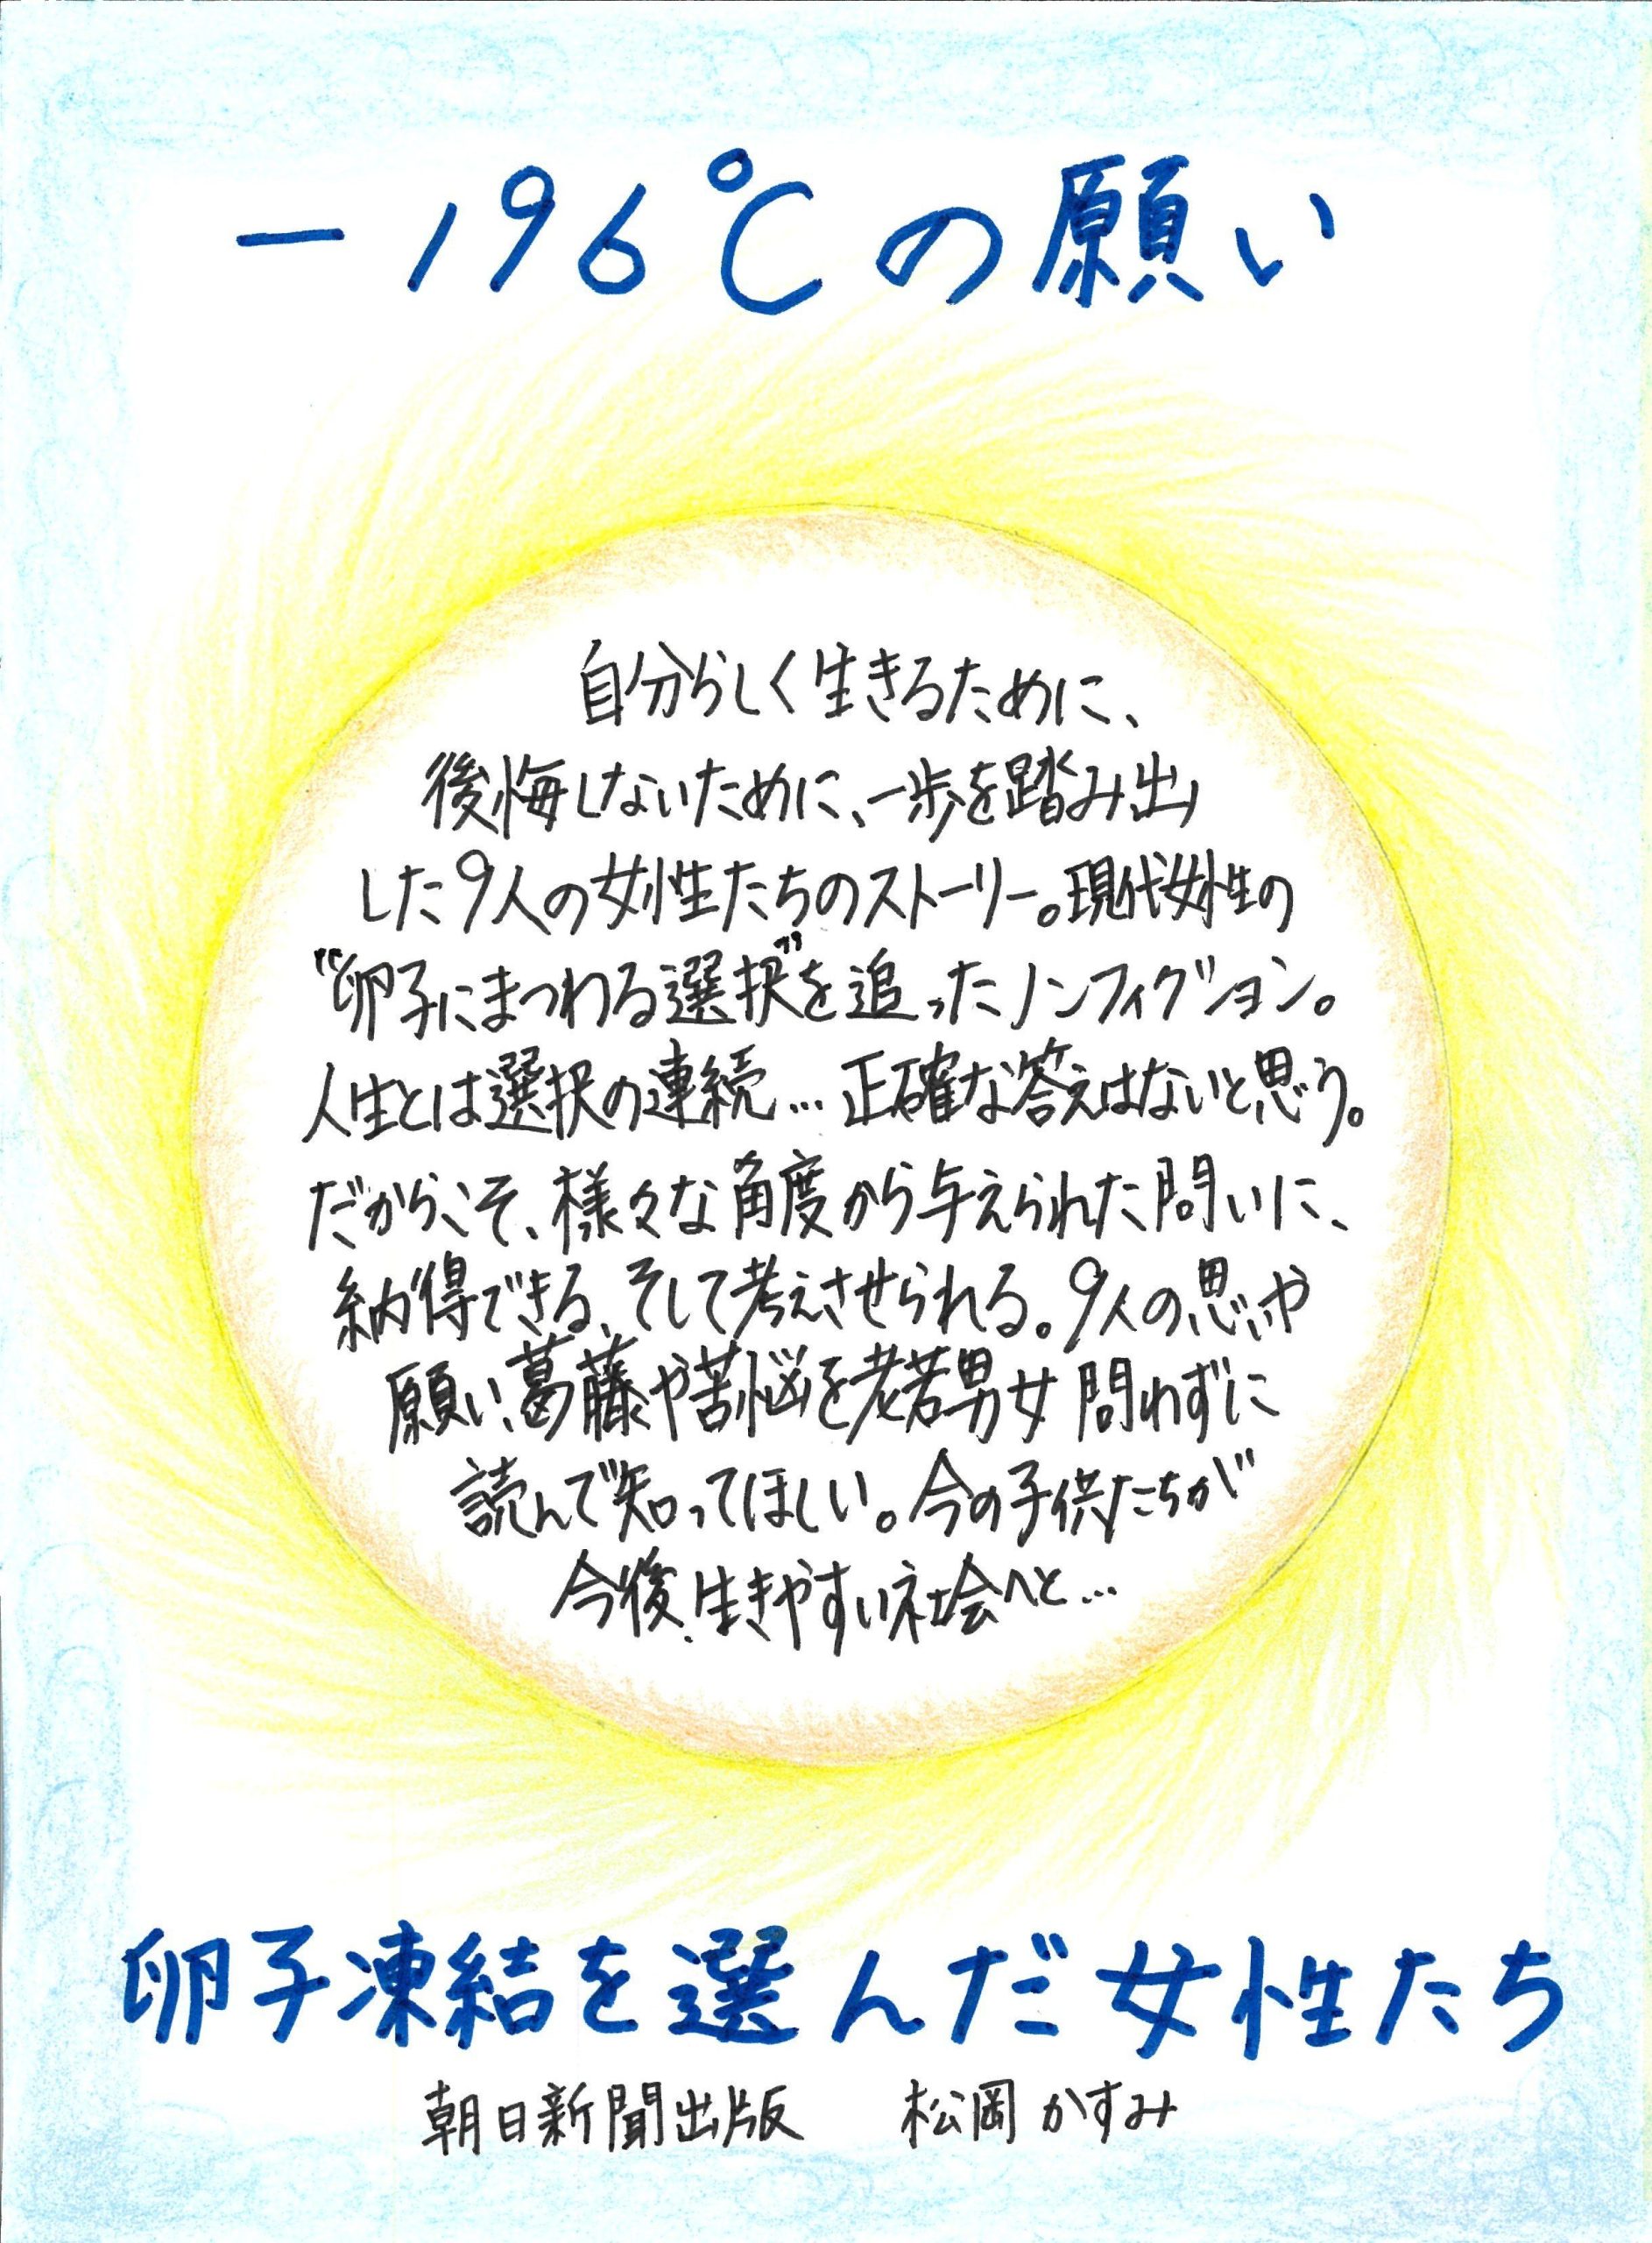 -196℃の願い
自分らしく生きるために、
後悔しないために、一歩を踏み出
した9人の女性たちのストーリー。現代女性の
“卵子にまつわる選択”を追ったノンフィクション。
人生とは選択の連続…正確な答えはないと思う。
だからこそ、様々な角度から与えられた問いに、
納得できる、そして考えさせられる。9人の思いや
願い、葛藤や苦悩を老若男女問わずに
読んで知ってほしい。今の子供たちが
今後、生きやすい社会へと…
卵子凍結を選んだ女性たち
朝日新聞出版 松岡かすみ